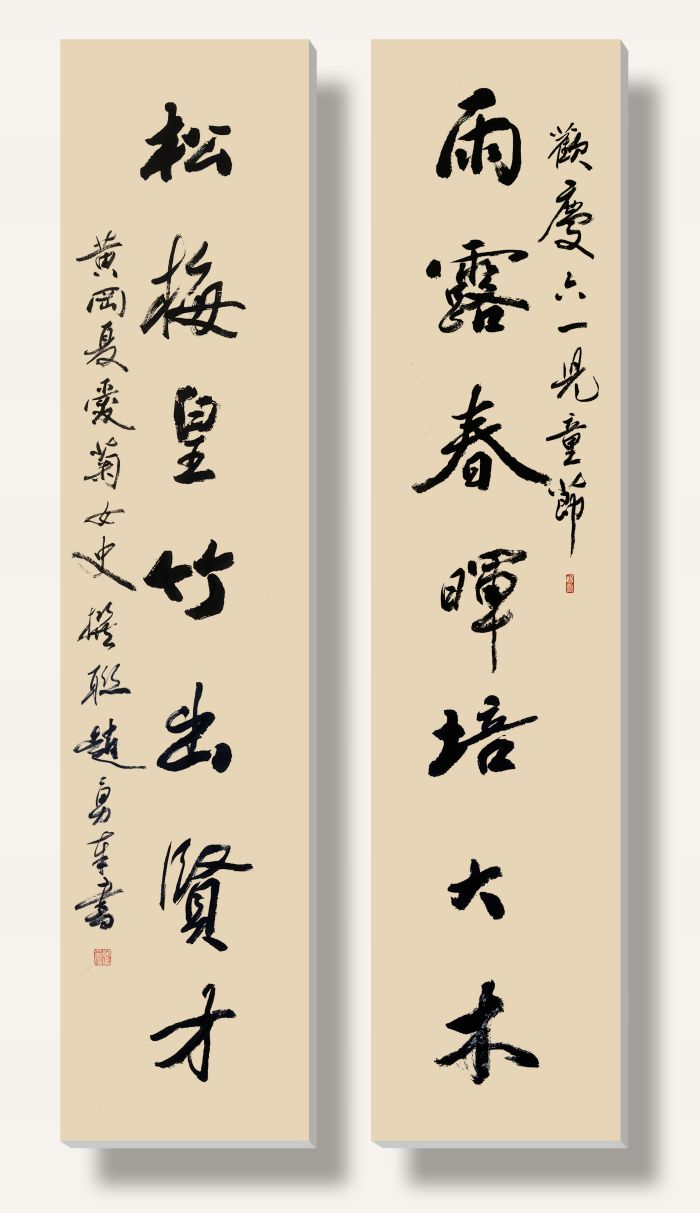 歡慶六一兒童節
雨露春暉培大木
松梅皇竹出賢才
黄岡夏愛菊女史撰聯趙勇奉書